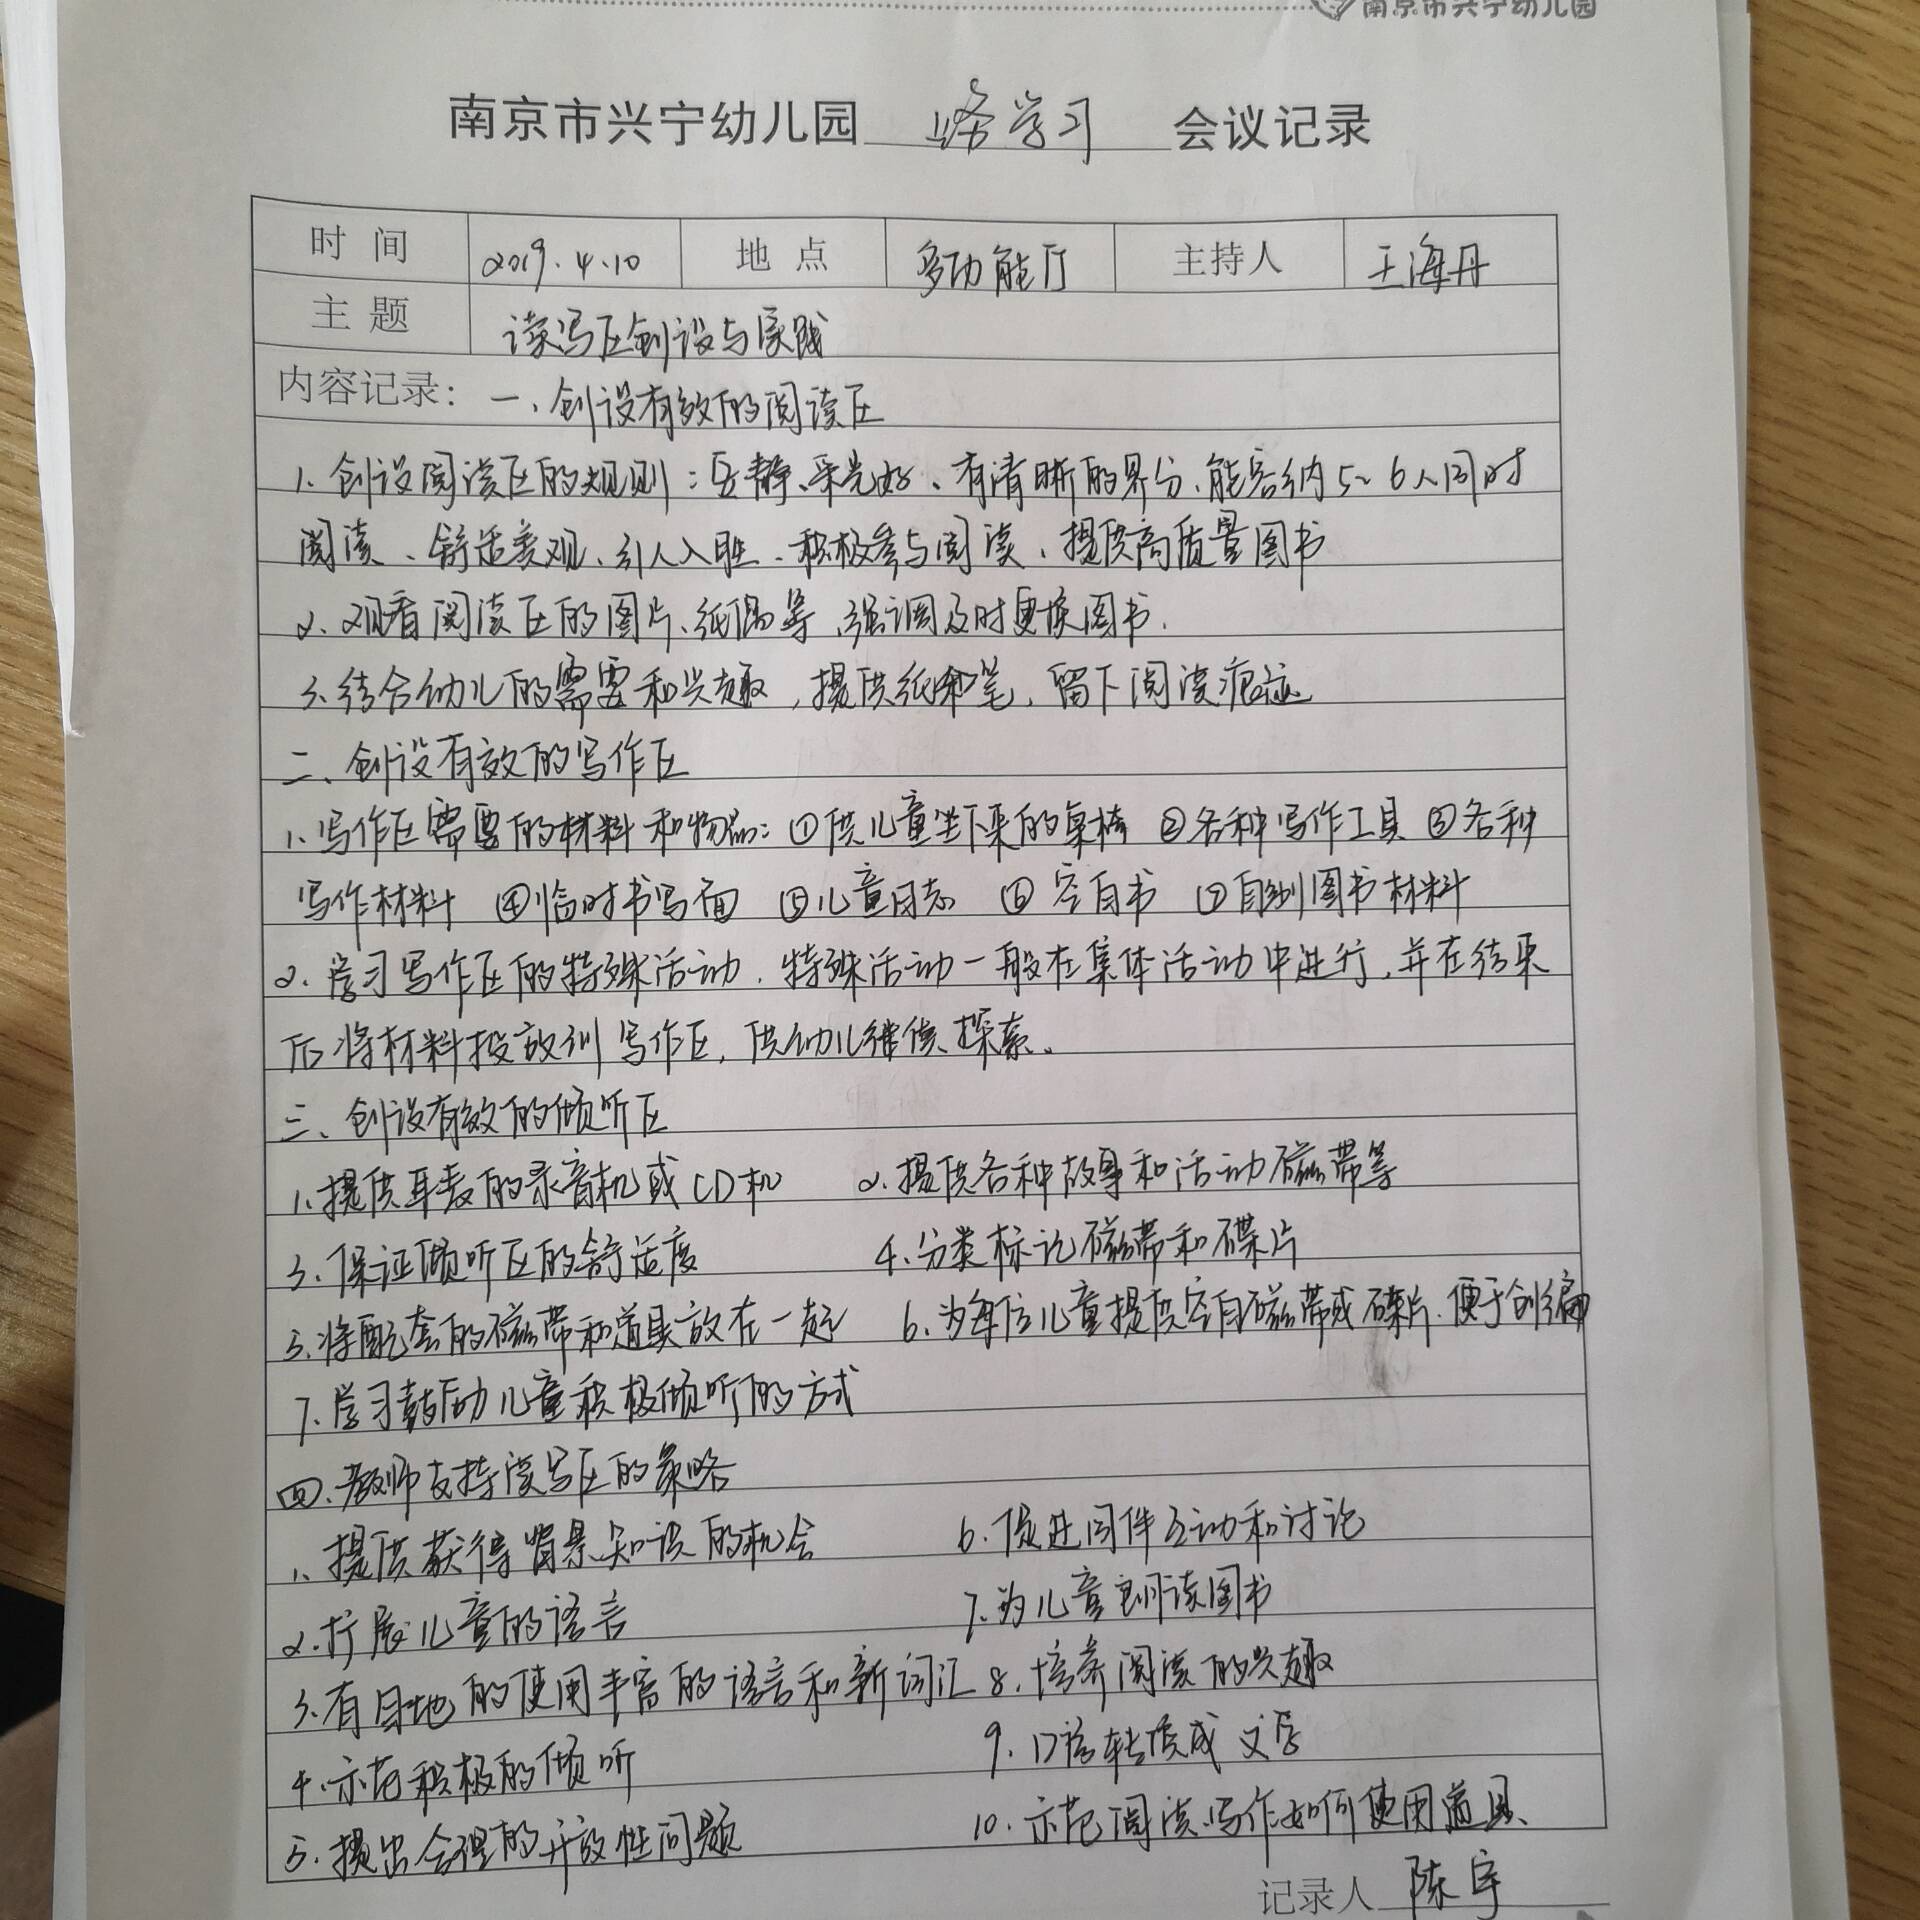 南京市兴宁幼儿园
南京市兴宁幼儿园 业务学习 会议记录
时间 2019.4.10 地点 多功能厅 主持人 王海丹
主题 读写区创设与实践
内容记录：一、创设有效的阅读区
1、创设阅读区的规则：安静、采光好、有清晰的界分、能容纳5~6人同时
阅读、舒适美观、引人入胜、积极参与阅读、提供高质量图书
2、观看阅读区的图片、纸偶等、强调及时更换图书.
3、结合幼儿的需要和兴趣，提供纸和笔，留下阅读痕迹
二、创设有效的写作区
1、写作区需要的材料和物品：①供儿童坐下来的桌椅 ②各种写作工具 ③各种
写作材料 ④临时书写面 ⑤儿童日志 ⑥空白书 ⑦自制图书材料
2、学习写作区的特殊活动，特殊活动一般在集体活动中进行，并在结束
后将材料投放到写作区，供幼儿继续探索。
三、创设有效的倾听区
1、提供耳麦的录音机或CD机 2、提供各种故事和活动磁带等
3、保证倾听区的舒适度 4、分类标记磁带和碟片
5、将配套的磁带和道具放在一起 6、为每位儿童提供空白磁带或碟片、便于创编
7、学习鼓励儿童积极倾听的方式
四、教师支持读写区的策略
1、提供获得背景知识的机会 6、促进同伴互动和讨论
2、扩展儿童的语言 7、为儿童朗读图书
3、有目地的使用丰富的语言和新词汇 8、培养阅读的兴趣
4、示范积极的倾听 9、口语转换成文字
5、提出合理的开放性问题 10、示范阅读、写作如何使用道具、
记录人 陈宇